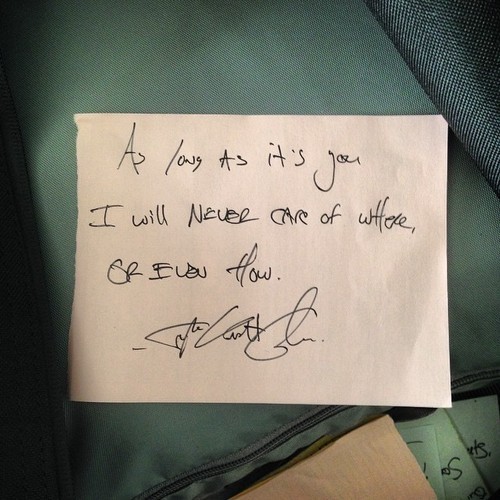 As long As it's you
I will NEVER CARE of wHere,
OR EVEN How.
of